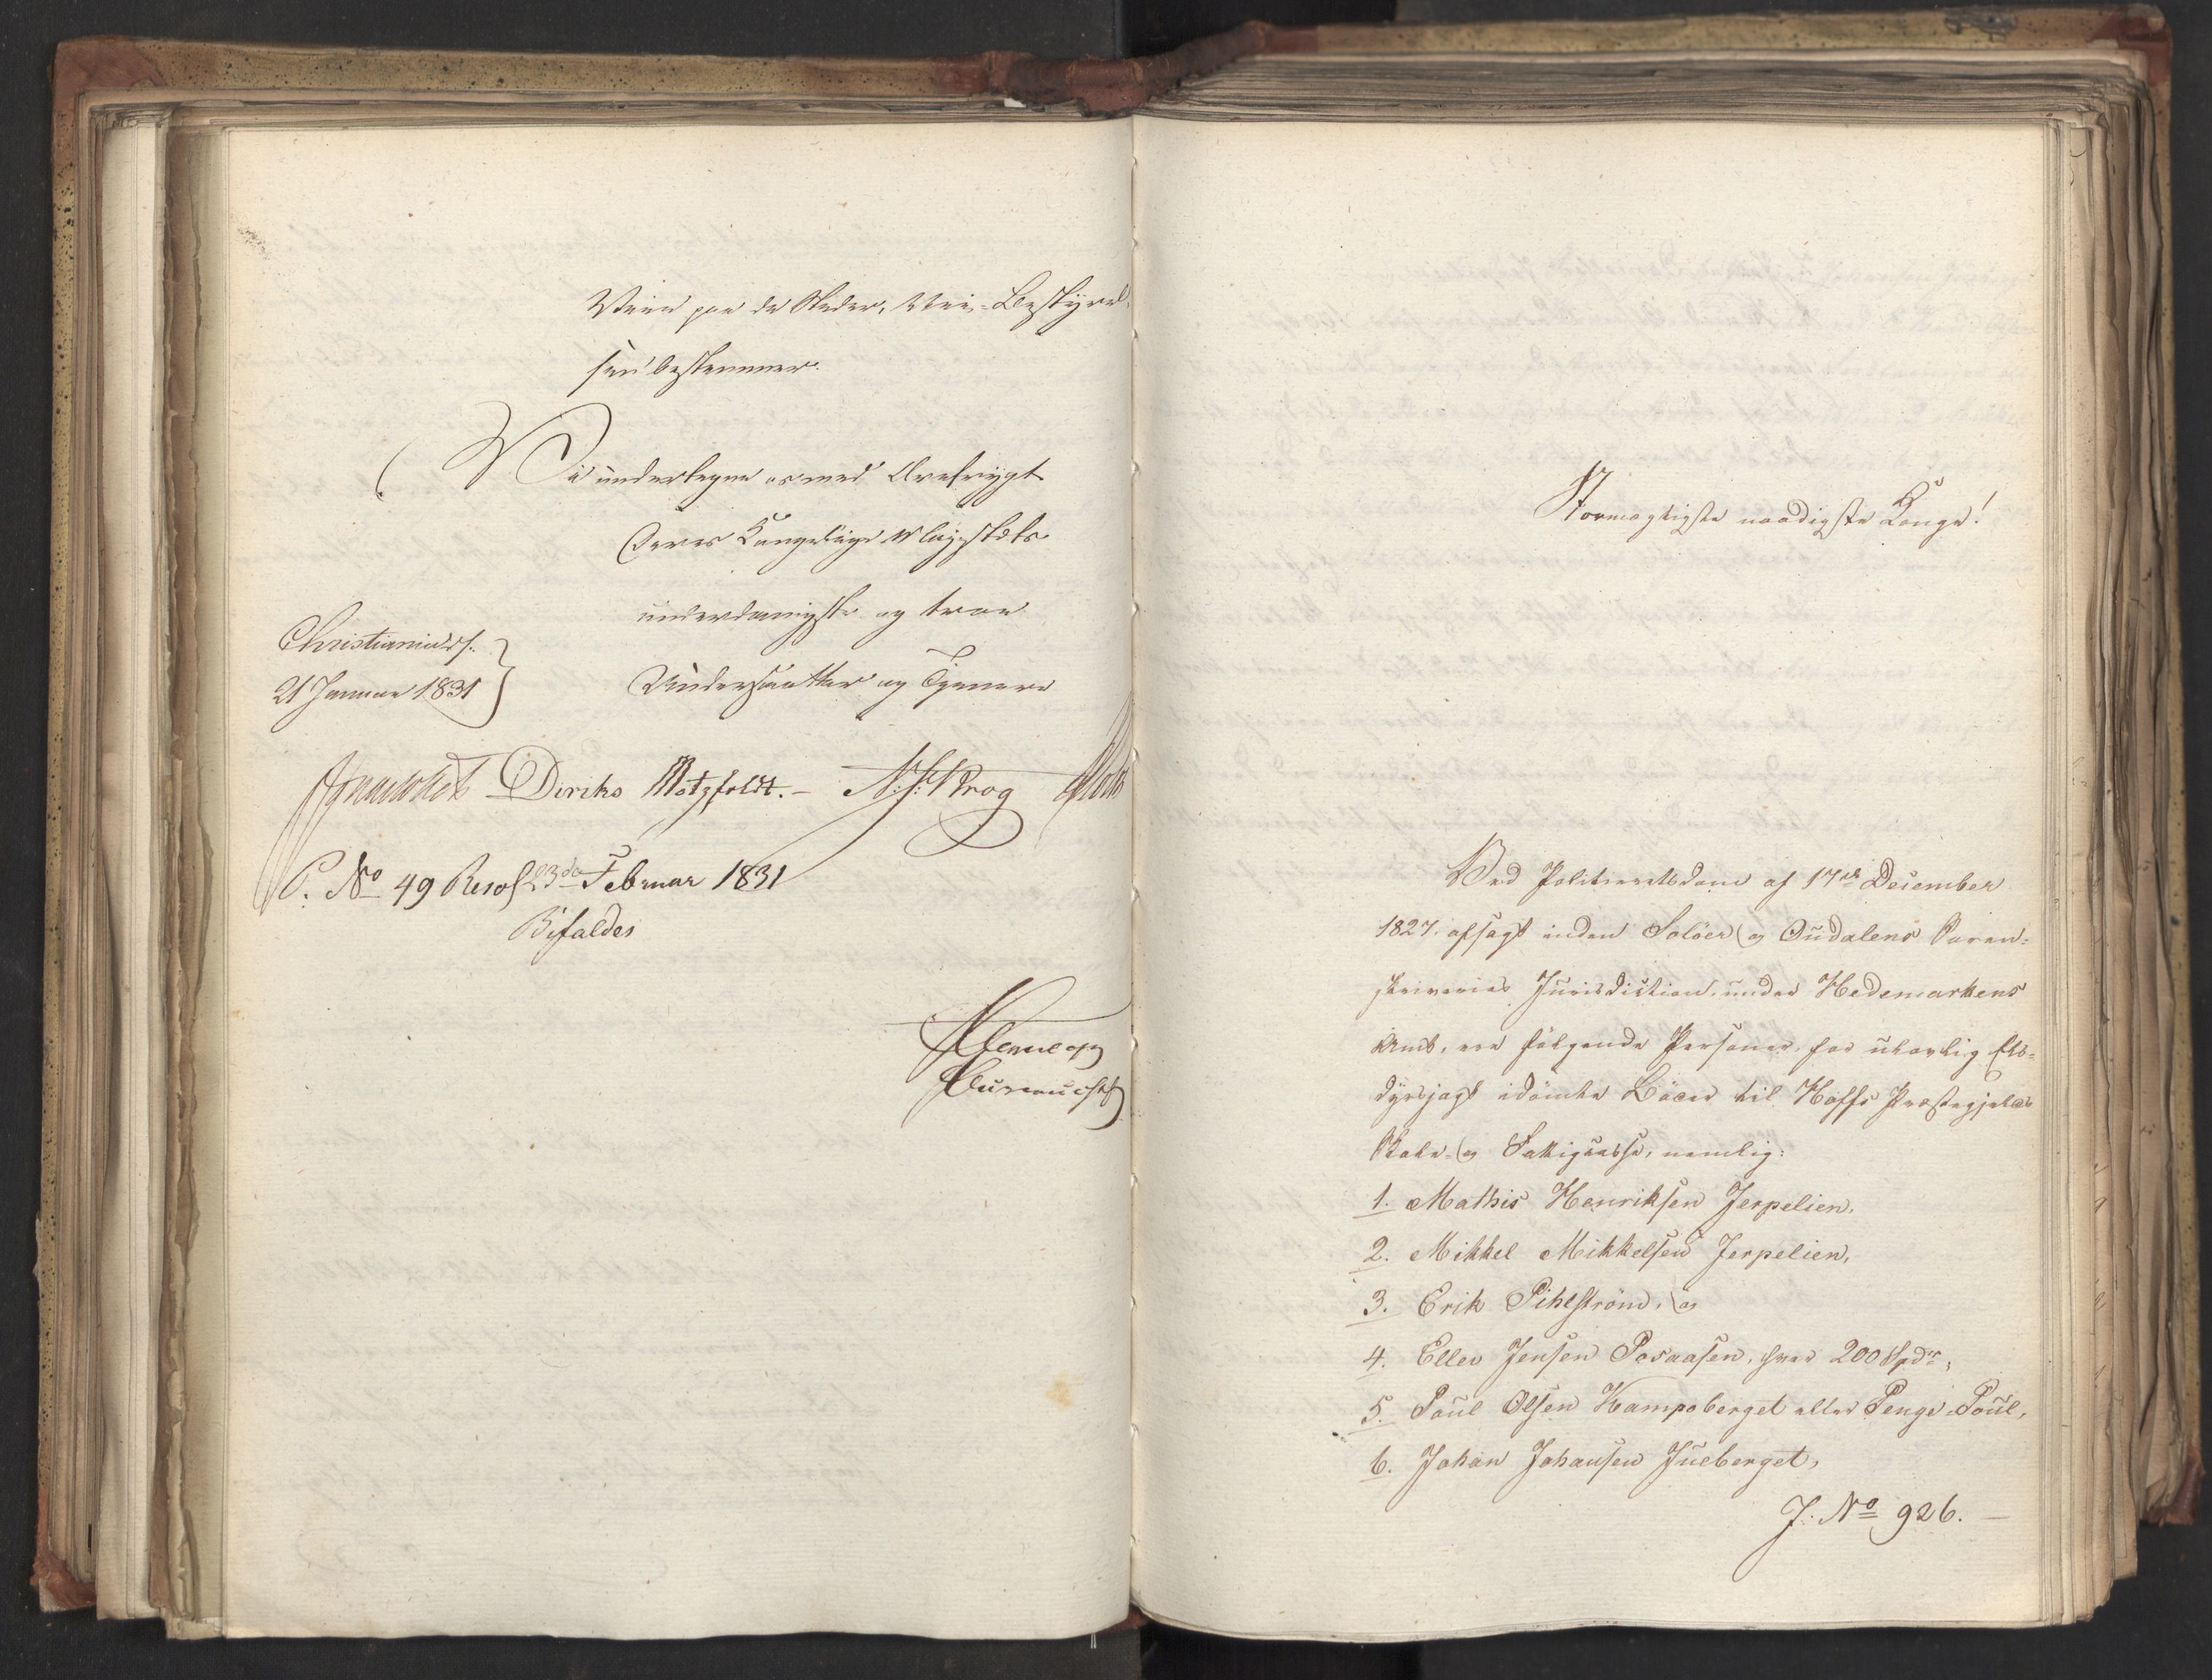 Veien paa de Steder, Vei-Bestyrel-
sen bestemmer.
Vi undertegne os med Ærefrygt
Deres Kongelige Majestæts
underdanigste og troe
Undersaatter og Tjenere
Christiania d.
21 Januar 1831
Diriks Motzfeldt. — N. J. Krog
P. No 49 Resol. 23de Februar 1831
Bifaldes
Stormægtigste naadigste Konge!
Ved Politieretsdom af 17de December
1827. afsagt inden Soløer og Oudalens Soren-
skriveries Jurisdiction, under Hedemarkens
Amt, ere følgende Personer, for ulovlig Els-
dyrsjagt idømte Bøder til Hoffs Præstegjelds
Skole- og Fattigcasse, nemlig:
1. Mathis Henriksen Jerpelien,
2. Mikkel Mikkelsen Jerpelien,
3. Erik Pihlstrøm, og
4. Ellev Jensen Posaasen, hver 200 Spdr,
5. Poul Olsen Kampoberget eller Penge-Poul,
6. Johan Johansen Jueberget,
J. No 926. —